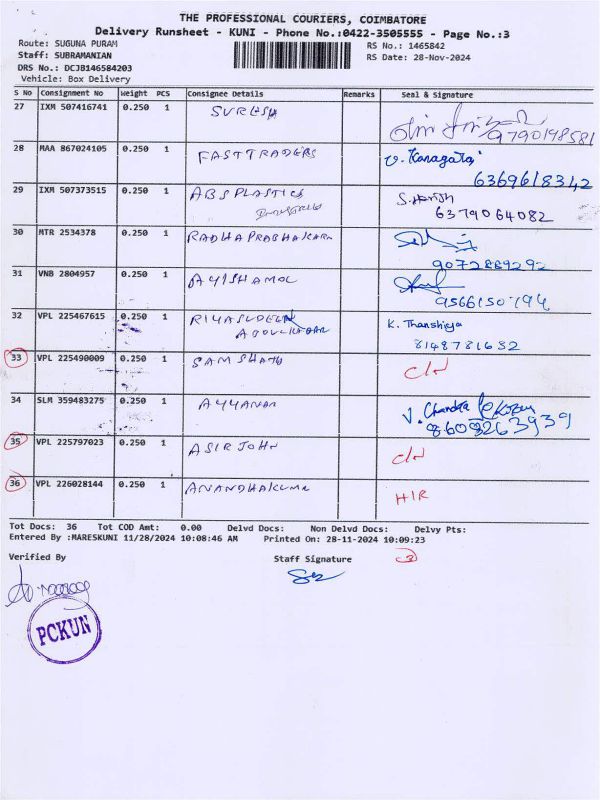 THE PROFESSIONAL COURIERS, COIMBATORE
Delivery Runsheet - KUNI - Phone No.:0422-3505555 - Page No.:3
Route: SUGUNA PURAM
RS No.: 1465842
Staff: SUBRAMANIAN
RS Date: 28-Nov-2024
DRS No.: DCJB146584203
Vehicle: Box Delivery
S No Consignment No Weight PCS Consignee Details Remarks Seal & Signature
27 IXM 507416741 0.250 1 SURESH
9790198581
28 MAA 867024105 0.250 1 FAST TRADERS V. Kanagaraj
6369618342
29 IXM 507373515 0.250 1 ABS PLASTICS S. Harish
6379064082
30 MTR 2534378 0.250 1 RADHA PRABHAKARN
9072889292
31 VNB 2804957 0.250 1 AYISHAMOL
9566150794
32 VPL 225467615 0.250 1 RIYASUDEEN K. Thanshiya
ABDULKADAR 8148781632
33 VPL 225490009 0.250 1 SAMSHATH C/N
34 SLM 359483275 0.250 1 AYYANAR V. Chandra
8608263939
35 VPL 225797023 0.250 1 ASIR JOHN C/N
36 VPL 226028144 0.250 1 ANANDHAKUMAR HIR
Tot Docs: 36 Tot COD Amt: 0.00 Delvd Docs: Non Delvd Docs: Delvy Pts:
Entered By :MARESKUNI 11/28/2024 10:08:46 AM Printed On: 28-11-2024 10:09:23
Verified By Staff Signature 3
PCKUN